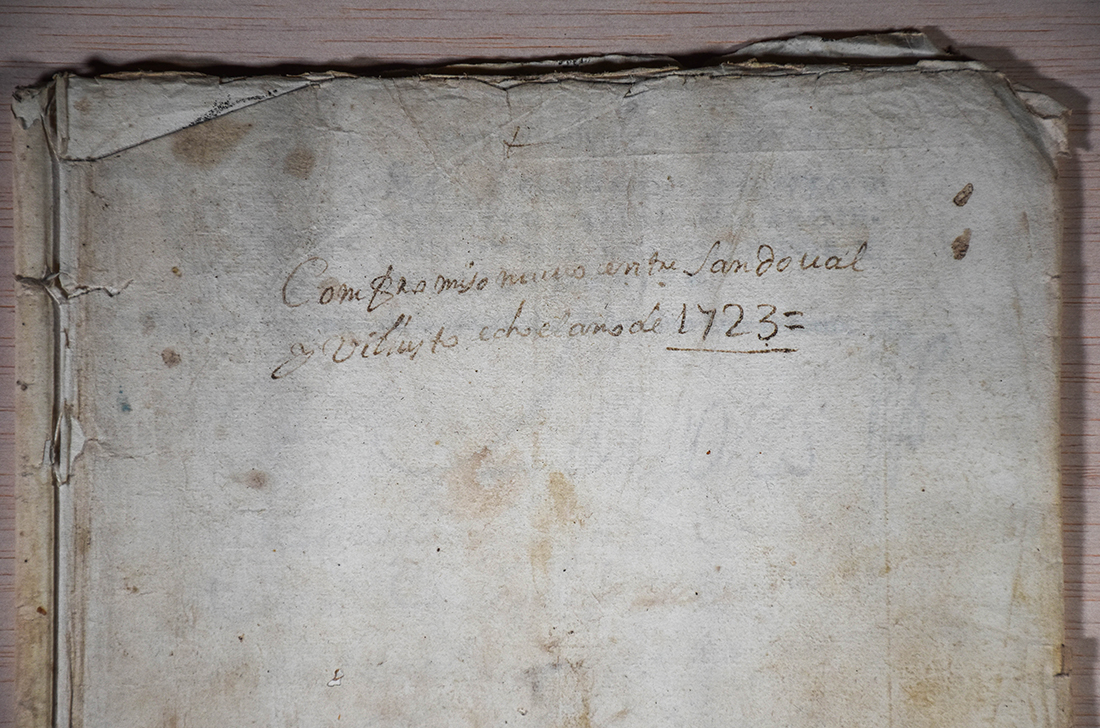 Compromiso nuevo entre Sandoual
y Villusto echo el año de 1723=